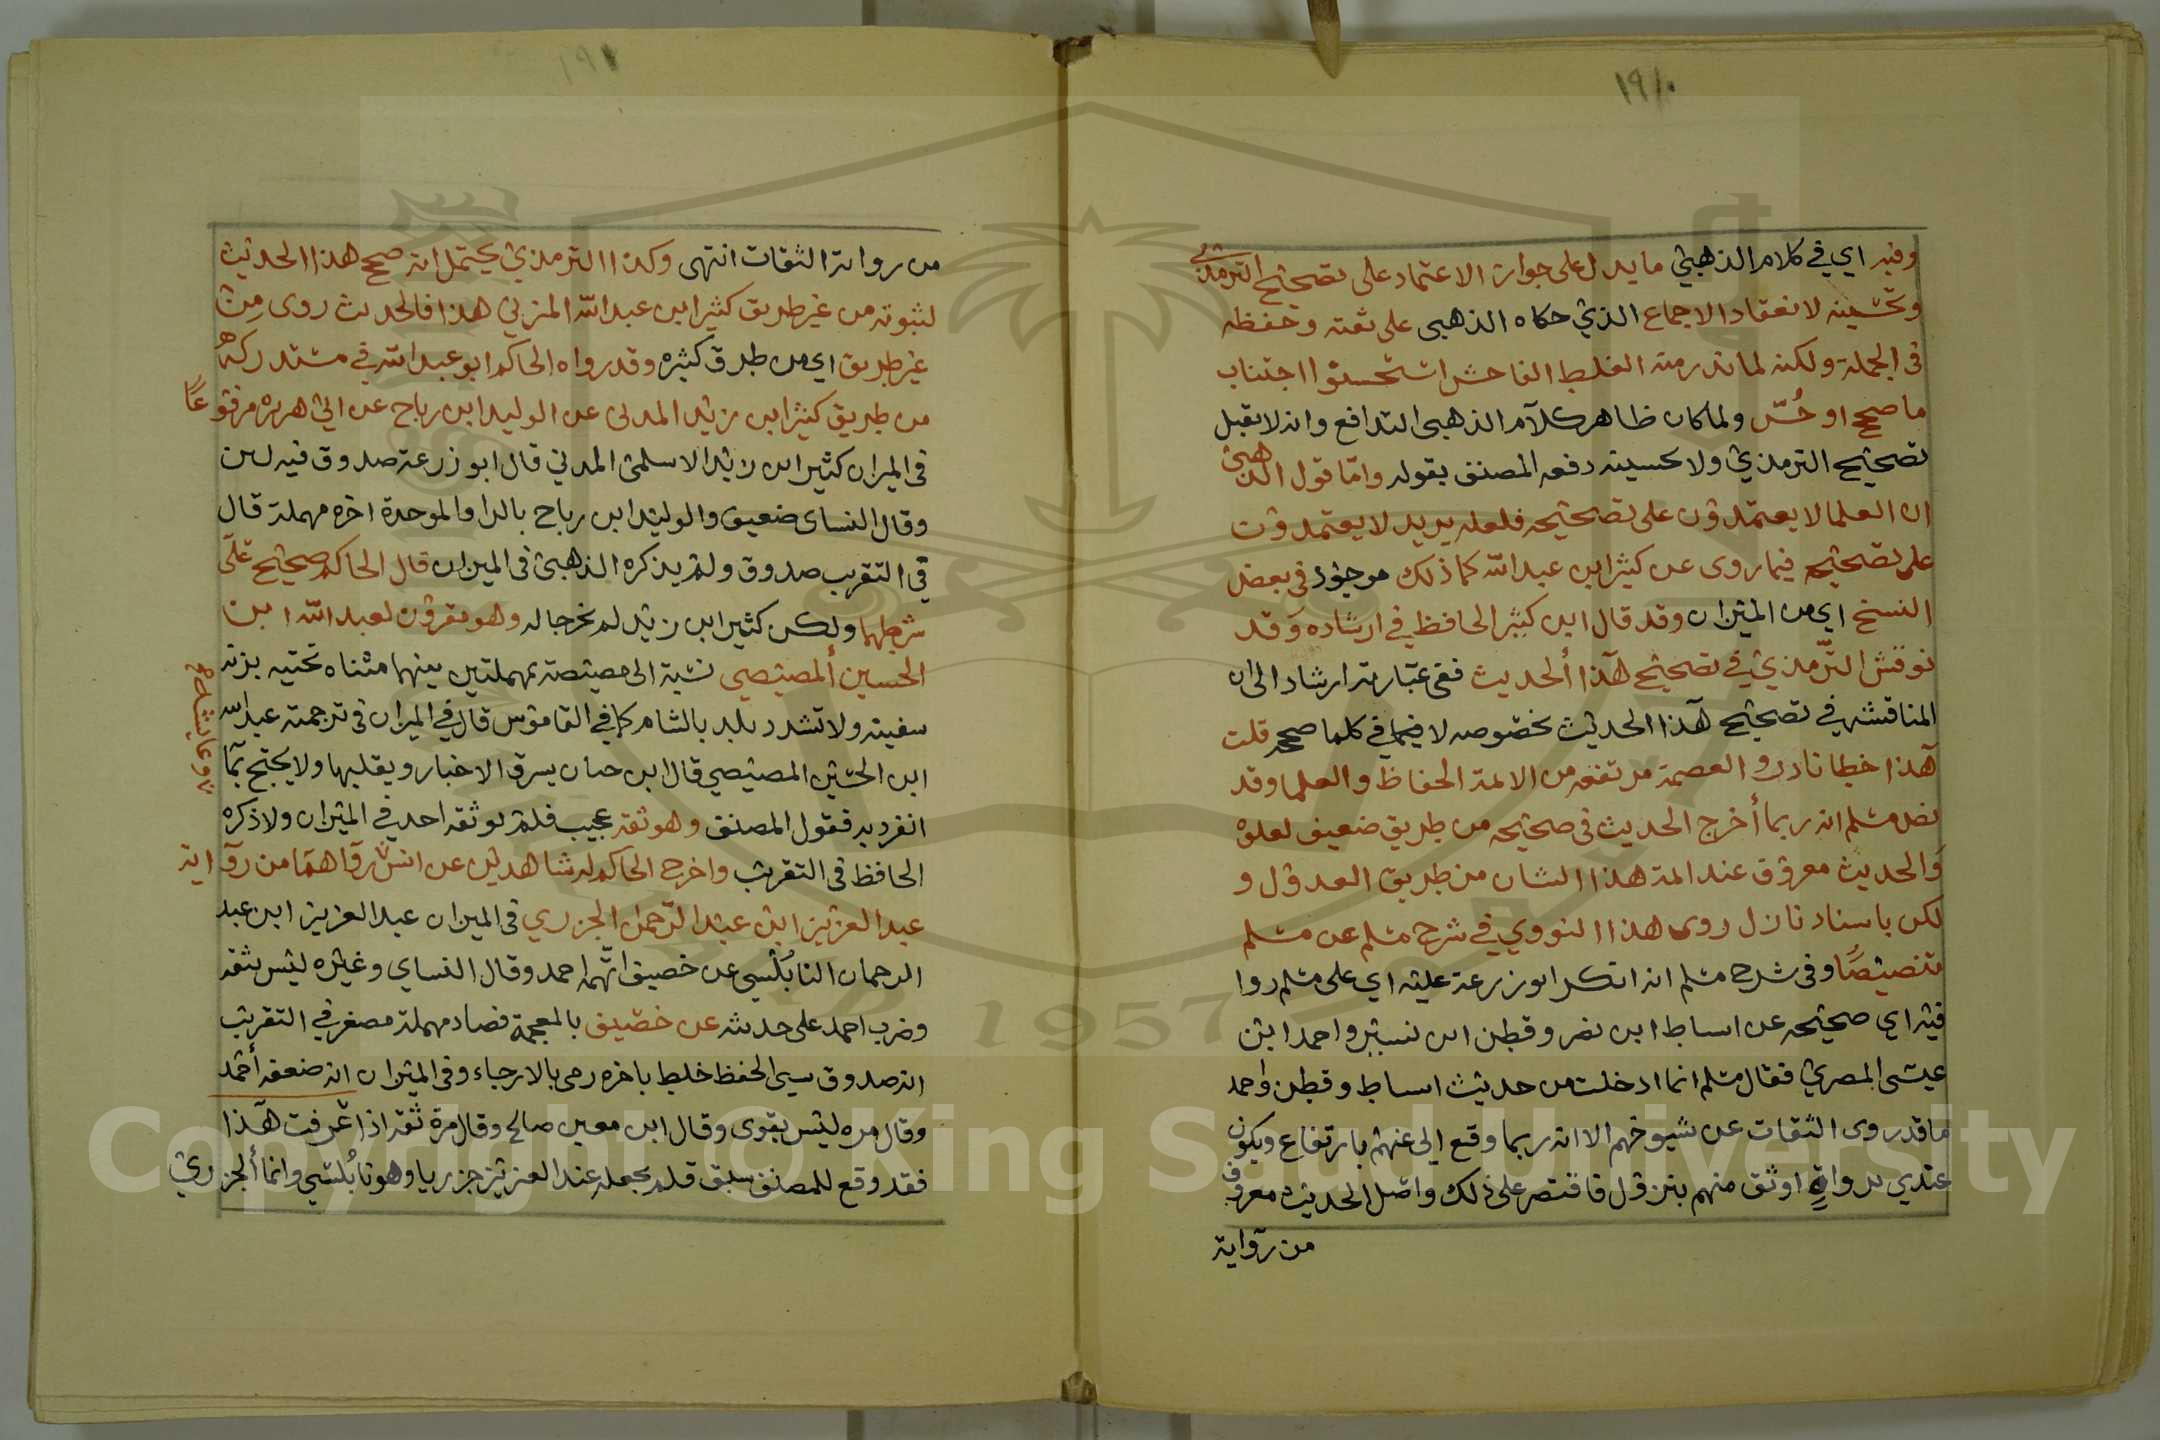 ١٩٠
وفيه اي في كلام الذهبي ما يدل على جواز الاعتماد على تصحيح الترمذي
وتحسينه لانعقاد الاجماع الذي حكاه الذهبي على ثقته وحفظه
في الجملة ولكنه لما ندر منه الغلط الفاحش استحسنوا اجتناب
ما صحح او حسّن ولما كان ظاهر كلام الذهبي التدافع وانه لا يقبل
تصحيح الترمذي ولا تحسينه دفعه المصنف بقوله وامّا قول الذهبي
ان العلما لا يعتمدون على تصحيحه فلعله يريد لا يعتمدون
على تصحيحه فيما روى عن كثير ابن عبد الله كما ذلك موجود في بعض
النسخ اي من الميزان وقد قال ابن كثير الحافظ في ارشاده وقد
نوقش الترمذي في تصحيح هذا الحديث ففي عبارته ارشاد الى ان
المناقشه في تصحيح هذا الحديث بخصوصه لا فيما في كلما صححه قلت
هذا خطا نادر والعصمة مرتفعه من الائمة الحفاظ والعلما وقد
نص مسلم انه ربما أخرج الحديث في صحيحه من طريق ضعيف لعلوه
والحديث معروف عند ائمة هذا الشان من طريق العدول و
لكن باسناد نازل روى هذا النووي في شرح مسلم عن مسلم
تنصيصًا وفي شرح مسلم انه انكر ابو زرعة عليه اي على مسلم روا
فيه اي صحيحه عن اسباط ابن نصر وقطن ابن نسير واحمد ابن
عيسى المصري فقال مسلم انما ادخلت من حديث اسباط وقطن واحمد
ما قد روى الثقات عن شيوخهم الا انه ربما وقع الي عنهم بارتفاع ويكون
عندي برواية اوثق منهم بنزول فاقتصر على ذلك واصل الحديث معروف
من رواية
١٩١
من رواية الثقات انتهى وكذا الترمذي يحتمل انه صحح هذا الحديث
لثبوته من غير طريق كثير ابن عبد الله المزني هذا فالحديث روى من
غير طريق اي من طرق كثيره وقد رواه الحاكم ابو عبد الله في مستدركه
من طريق كثير ابن زيد المدني عن الوليد ابن رباح عن ابي هريره مرفوعًا
في الميزان كثير ابن زيد الاسلمي المدني قال ابو زرعة صدوق فيه لين
وقال النساى ضعيف والوليد ابن رباح بالرا والموحدة اخره مهملة قال
في التقريب صدوق ولم يذكره الذهبي في الميزان قال الحاكم صحيح على
شرطهما ولكن كثير ابن زيد لم يخرجا له وهو مقرون لعبد الله ابن
الحسين المصيصي نسبة الى مصيصة بمهملتين بينهما مثناه تحتيه بزنة
سفينه ولا تشدد بلد بالشام كما في القاموس قال في الميزان في ترجمة عبد الله
ابن الحسين المصيصي قال ابن حبان يسرق الاخبار ويقلبها ولا يحتج بما
انفرد به فقول المصنف وهو ثقة عجيب فلم يوثقه احد في الميزان ولا ذكره
الحافظ في التقريب واخرج الحاكم له شاهدين عن انس وعايشة وهما من رواية
عبد العزيز ابن عبد الرحمن الجزري في الميزان عبد العزيز ابن عبد
الرحمان النابُلسي عن خصيف اتّهمه احمد وقال النساي وغيره ليس بثقه
وضرب احمد على حديثه عن خصيف بالمعجمة فصاد مهملة مصغر في التقريب
انه صدوق سيئ الحفظ خلط باخره رمى بالارجاء وفى الميزان انه ضعفه أحمد
وقال مره ليس بقوى وقال ابن معين صالح وقال مرة ثقة اذا عرفت هذا
فقد وقع للمصنف سبق قلم بجعله عبد العزيز جزريا وهو نابُلسي وانما الجزري
1957
Copyright © King Saud University